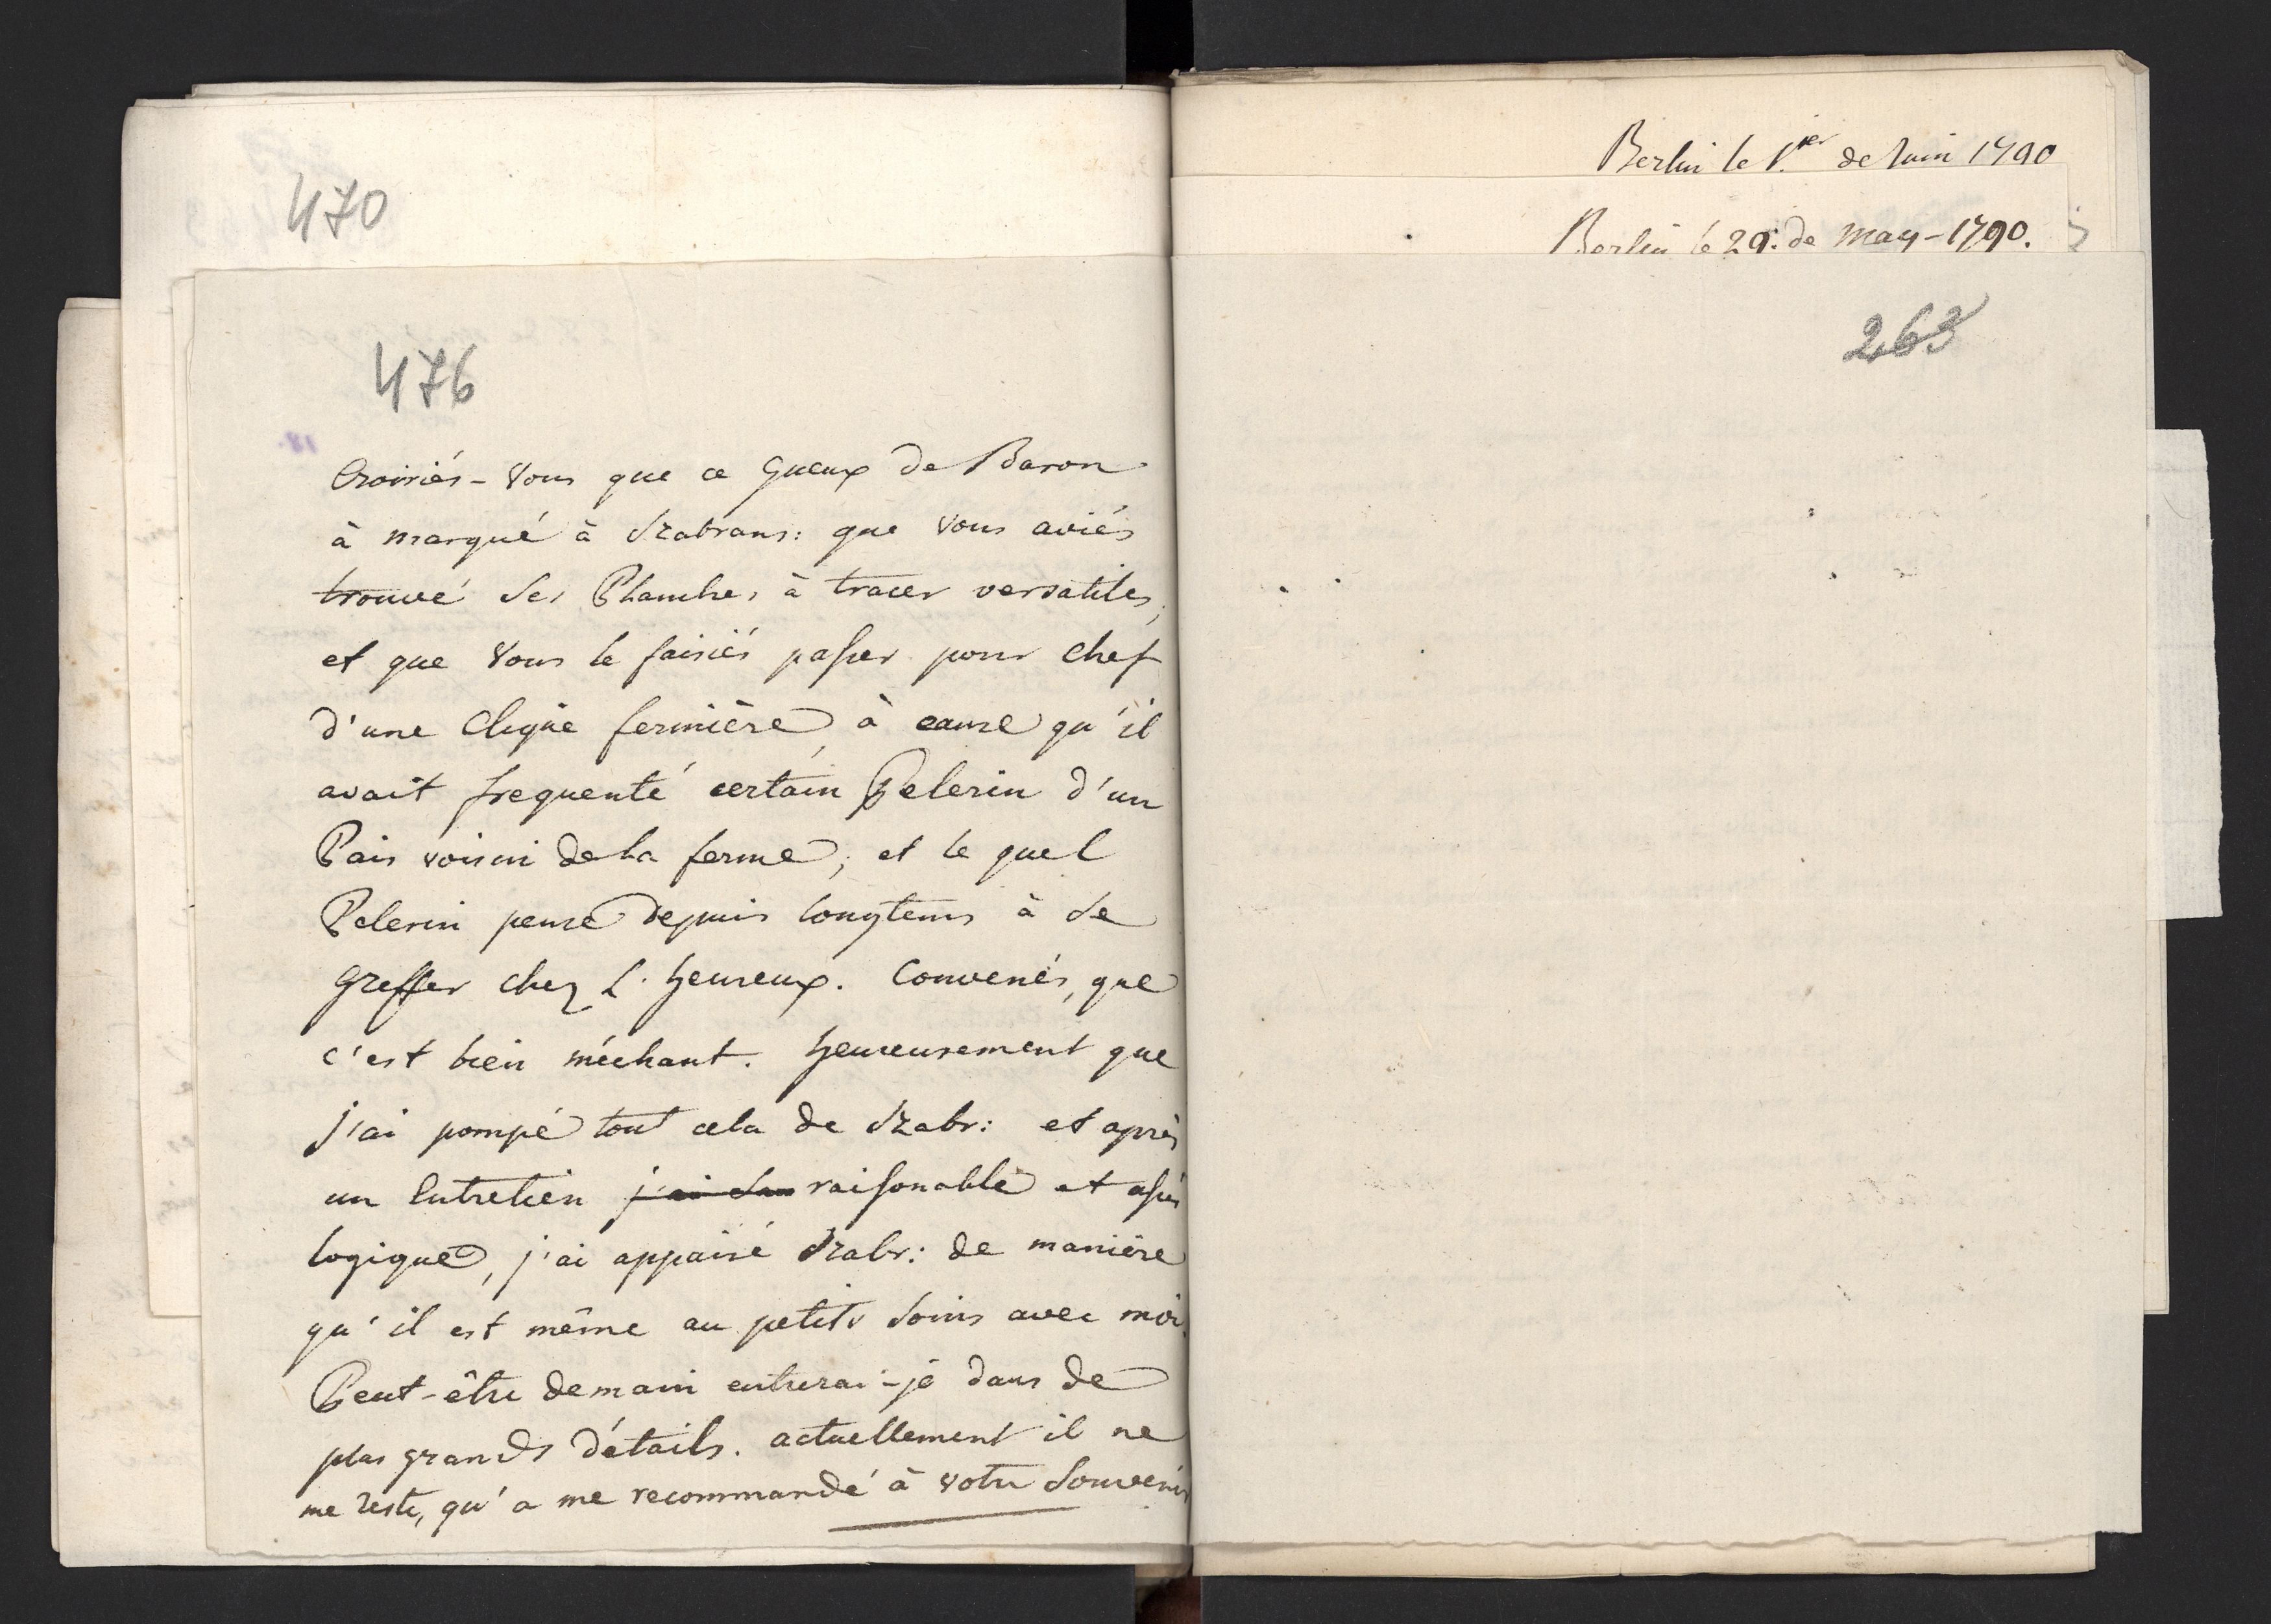 470
476
Croiriés-Vous que ce Gueux de Baron
à marqué à Szabrans: que Vous aviés
trouvé Ses Planches à tracer versatiles,
et que Vous le faisiés passer pour Chef
d'une Clique fermière, à cause qu'il
avait frequenté certain Pelerin d'un
Païs voisin de la ferme; et le quel
Pelerin pense depuis longtems à Se
greffer chez L'heureux. Convenés, que
c'est bien méchant. Heureusement que
j'ai pompé tout cela de Szabr: et après
un Entretien j'ai raisonable et assés
logique, j'ai appaisé Szabr: de manière
qu'il est même au petits Soins avec moi.
Peut-être demain entrerai-je dans de
plus grands détails. actuellement il ne
me reste, qu'a me recommandé à votre Souvenir
Berlin le 1.ier de Juin 1790
Berlin le 29. de May-1790.
263